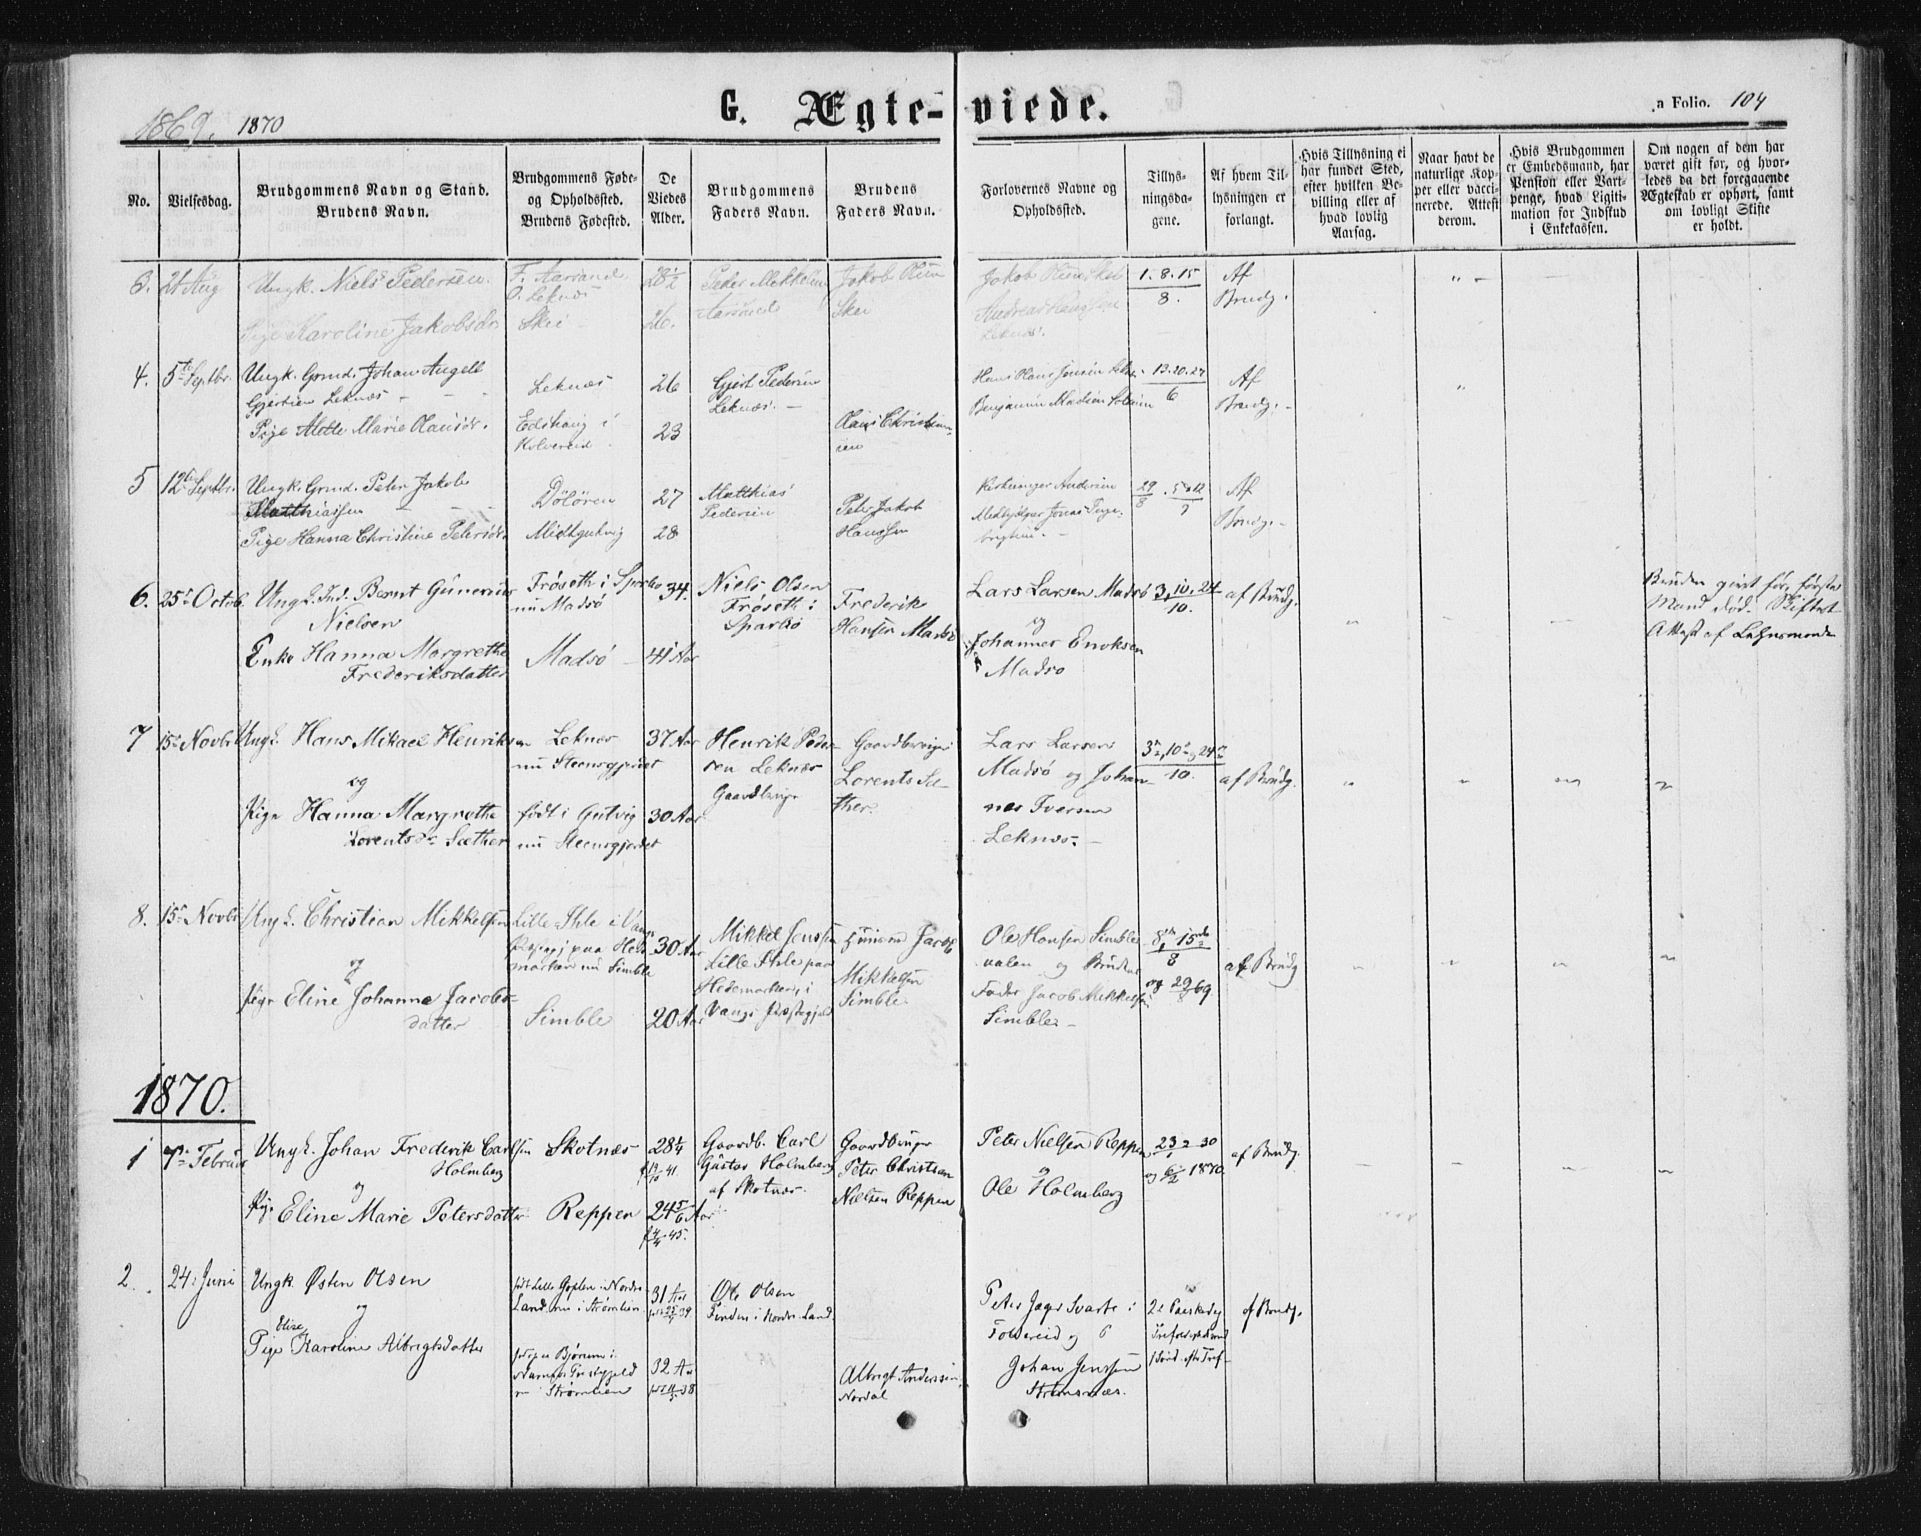 1869. 1870
G. Ægte-viede.
a Folio. 104
No.
Vielsesdag.
Brudgommens Navn og Stand.
Brudens Navn.
Brudgommens Føde-
og Opholdssted.
Brudens Fødested.
De
Viedes
Alder.
Brudgommens
Faders Navn.
Brudens
Faders Navn.
Forlovernes Navne og
Opholdssted.
Tillys-
ningsda-
gene.
Af hvem Til-
lysningen er
forlangt.
Hvis Tillysning ei
har fundet Sted,
efter hvilken Be-
villing eller af
hvad lovlig
Aarsag.
Naar havt de
naturlige Kop-
per eller vacci-
nerede. Attest
derom.
Hvis Brudgommen
er Embedsmand, har
Pension eller Vart-
penge, hvad Legiti-
mation for Indskud
i Enkekassen.
Om nogen af dem har
været gift før, og hvor-
ledes da det foregaaende
Ægteskab er ophørt, samt
om lovligt Skifte
er holdt.
3. 21 Aug
Ungk. Niels Pedersen
Pige Karoline Jakobsdr
F. Aarsand
O. Leknæs
Skei
28½
26.
Peder Mikkelsen
Aarsand
Jakob Olsen
Skei
Jakob Olsen Skei
Andreas Hansen
Leknæs.
1. 8. 15
8.
Af
Brudg.
4. 5te Septbr.
Ungk. Grmd. Johan Angell
Gjertsen Leknæs
Pige Mette Marie Olausdr.
Leknæs
Edshaug i
Kolvereid
26
23
Gjert Pedersen
Leknæs.
Olaus Christian-
sen
Benjamin Madsen
13. 20. 27
6
Af
Brudg.
5 12te Septbr.
Ungk. Grmd. Peter Jakob
Matthiassen
Pige Hanna Christine Petersdr.
Døløren
Midtgutvig
27
28
Matthias
Pedersen
Peter Jakob
Hanssen
Kirkesanger Andersen
Medhjelper Jonas
29/8 . 5 & 12/9
Af
Brudg.
6. 25de Octob.
Ungk. Ind. Bernt Gunerius
Nielsen
Enke Hanna Margrethe
Frederiksdatter
Frøseth i Sparbo
nu Madsø
Madsø
34.
41 Aar
Niels Olsen
Frøseth i
Sparbo
Frederik
Hansen Madsø
Lars Larsen Madsø
og
Johannes Enoksen
Madsø
3, 10, 24
10.
af Brudg.
Bruden givt før, første
Mand død. Skifte-
Attest af Lehnsmanden
7 15de Novbr
Ungk. Hans Mikael Henriksen
og
Pige Hanna Margrethe
Lorentsdr Sæther
Leknæs
nu Steensgjerdet
født i Gutvig
nu Steensgjerdet
37 Aar
30 Aar
Henrik Peder-
sen Leknæs
Gaardbruger
Gaardbruger
Lorents Sæ-
ther.
Lars Larsen
Madsø og Johan-
nes Iversen
Leknæs
3de, 10de og 24de
10.
af Brudg.
8. 15de Novbr
Ungk. Christian Mikkelsen
og
Pige Eline Johanna Jacobs-
datter
Lille Stile i Vangs
Præstegj paa Hede-
marken nu Simble
Simble
30 Aar
20 Aar
Mikkel Jenssen
Lille Stile paa
Hedemarken i
Vangs Præstegjeld
Jacob
Mikkelsen
Simble
Ole Hansen Simble-
valen og Brudens
Fader Jacob Mikkelsen
Simble
8de, 15de
8
og 29/8 69.
af Brudg
1870.
1 7de Februar
Ungk. Johan Frederik Carlsen
Holmberg
og
Pige Eline Marie Petersdatter
Skotnæs
Reppen
28¼
24 5/6 Aar
Gaardb. Carl
Gustav Holmberg
af Skotnæs.
Gaardbruger
Peter Christian
Nielsen Reppen
Peter Nielsen Reppen
og
Ole Holmberg
23 & 30
1
og 6/2 1870.
af Brudg.
2. 24 Juni
Ungk Østen Olsen
og
Elise
Pige Karoline Albrigtsdatter
født Lille Goplen i Nordre
Land nu i Strømlien
Bjørum i
Namsos Præstegjeld
nu Strømlien
31 Aar
32 Aar
Ole Olsen
Finden i Nordre Land
Albrigt Anderssen
Nordal
Peter Jager Svarte i
Foldereid og
Johan Jenssen
Strømsnæs.
2d Paaskedag
af Brudg.